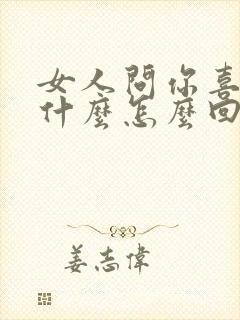 女人問你喜
什麼怎麼回
姜志偉